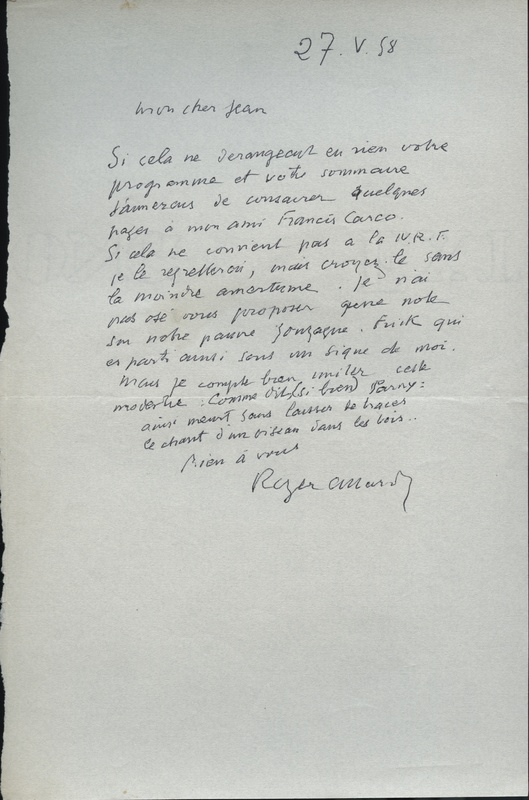 27. V. 58
mon cher Jean
Si cela ne derangeait en rien votre
programme et votre sommaire
j'aimerais de consacrer quelques
pages à mon ami Francis Carco.
Si cela ne convient pas a la N.R.F.
je le regretterai, mais croyez-le sans
la moindre amertume. Je n'ai
pas osé vous proposer une note
sur notre pauvre Gonzague. Frick qui
est parti ainsi sans un signe de moi.
Mais je compte bien imiter cette
modestie. Comme dit si bien Parny:
ainsi meurt sans laisser de traces
le chant d'un oiseau dans les bois..
Bien à vous
Roger Allard